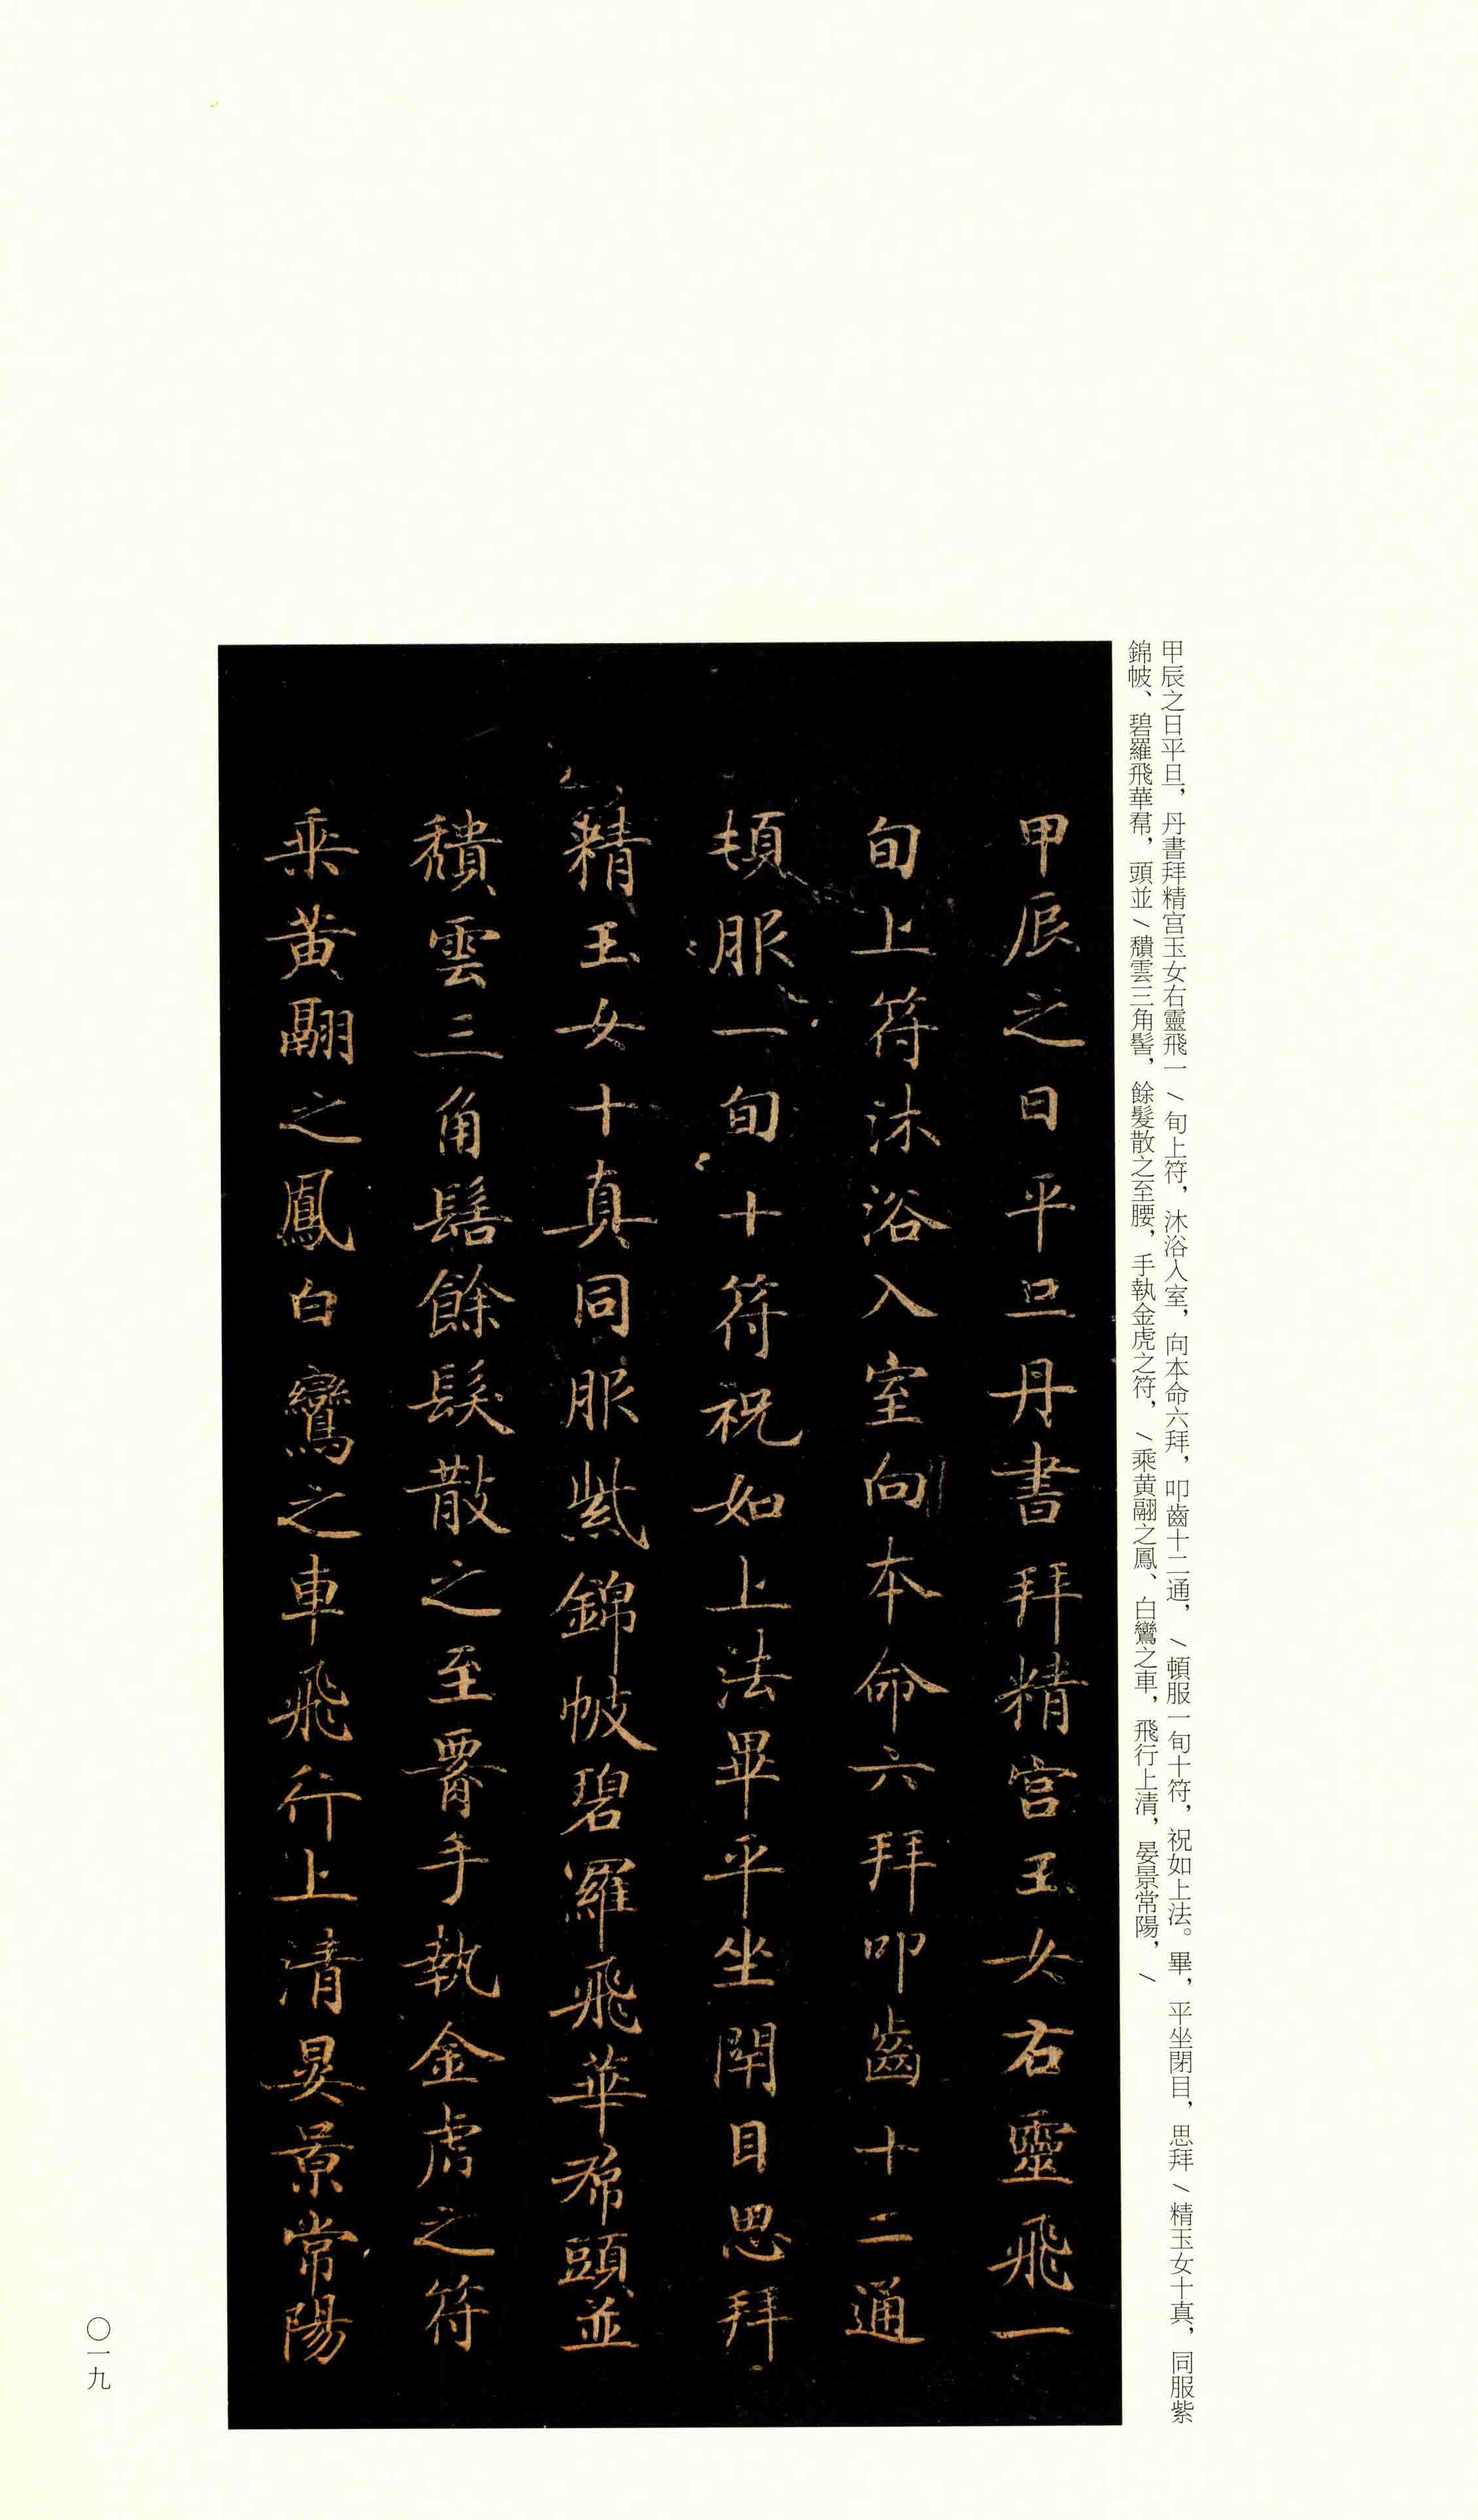 甲辰之日平旦，丹書拜精宫玉女右靈飛一／旬上符，沐浴入室，向本命六拜，叩齒十二通，／頓服一旬十符，祝如上法。畢，平坐閉目，思拜／精玉女十真，同服紫
錦帔、碧羅飛華帬，頭並／穨雲三角髻，餘髮散之至腰，手執金虎之符，／乘黄翮之鳳、白鸞之車，飛行上清，晏景常陽，／
甲辰之日平旦丹書拜精宫玉女右靈飛一
旬上符沐浴入室向本命六拜叩齒十二通
頓服一旬十符祝如上法畢平坐閉目思拜
精玉女十真同服紫錦帔碧羅飛華帬頭並
穨雲三角髻餘髮散之至腰手執金虎之符
乘黄翮之鳳白鸞之車飛行上清晏景常陽
〇一九